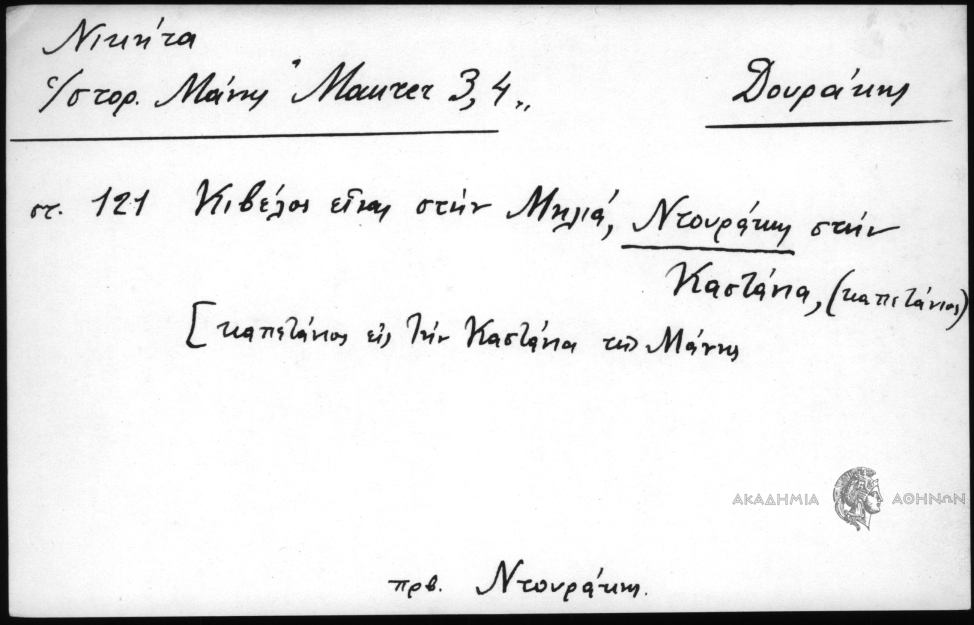 Νικήτα
Ἱστορ. Μάνης "Maurer 3,4„
Δουράκης
στ. 121 Κιβέλος εἶναι στήν Μηλιά, Ντουράκης στήν
Καστάνια, (καπετάνιος)
[καπετάνιος εἰς τήν Καστάνια τῆς Μάνης
ΑΚΑΔΗΜΙΑ ΑΘΗΝΩΝ
πρβ. Ντουράκης.